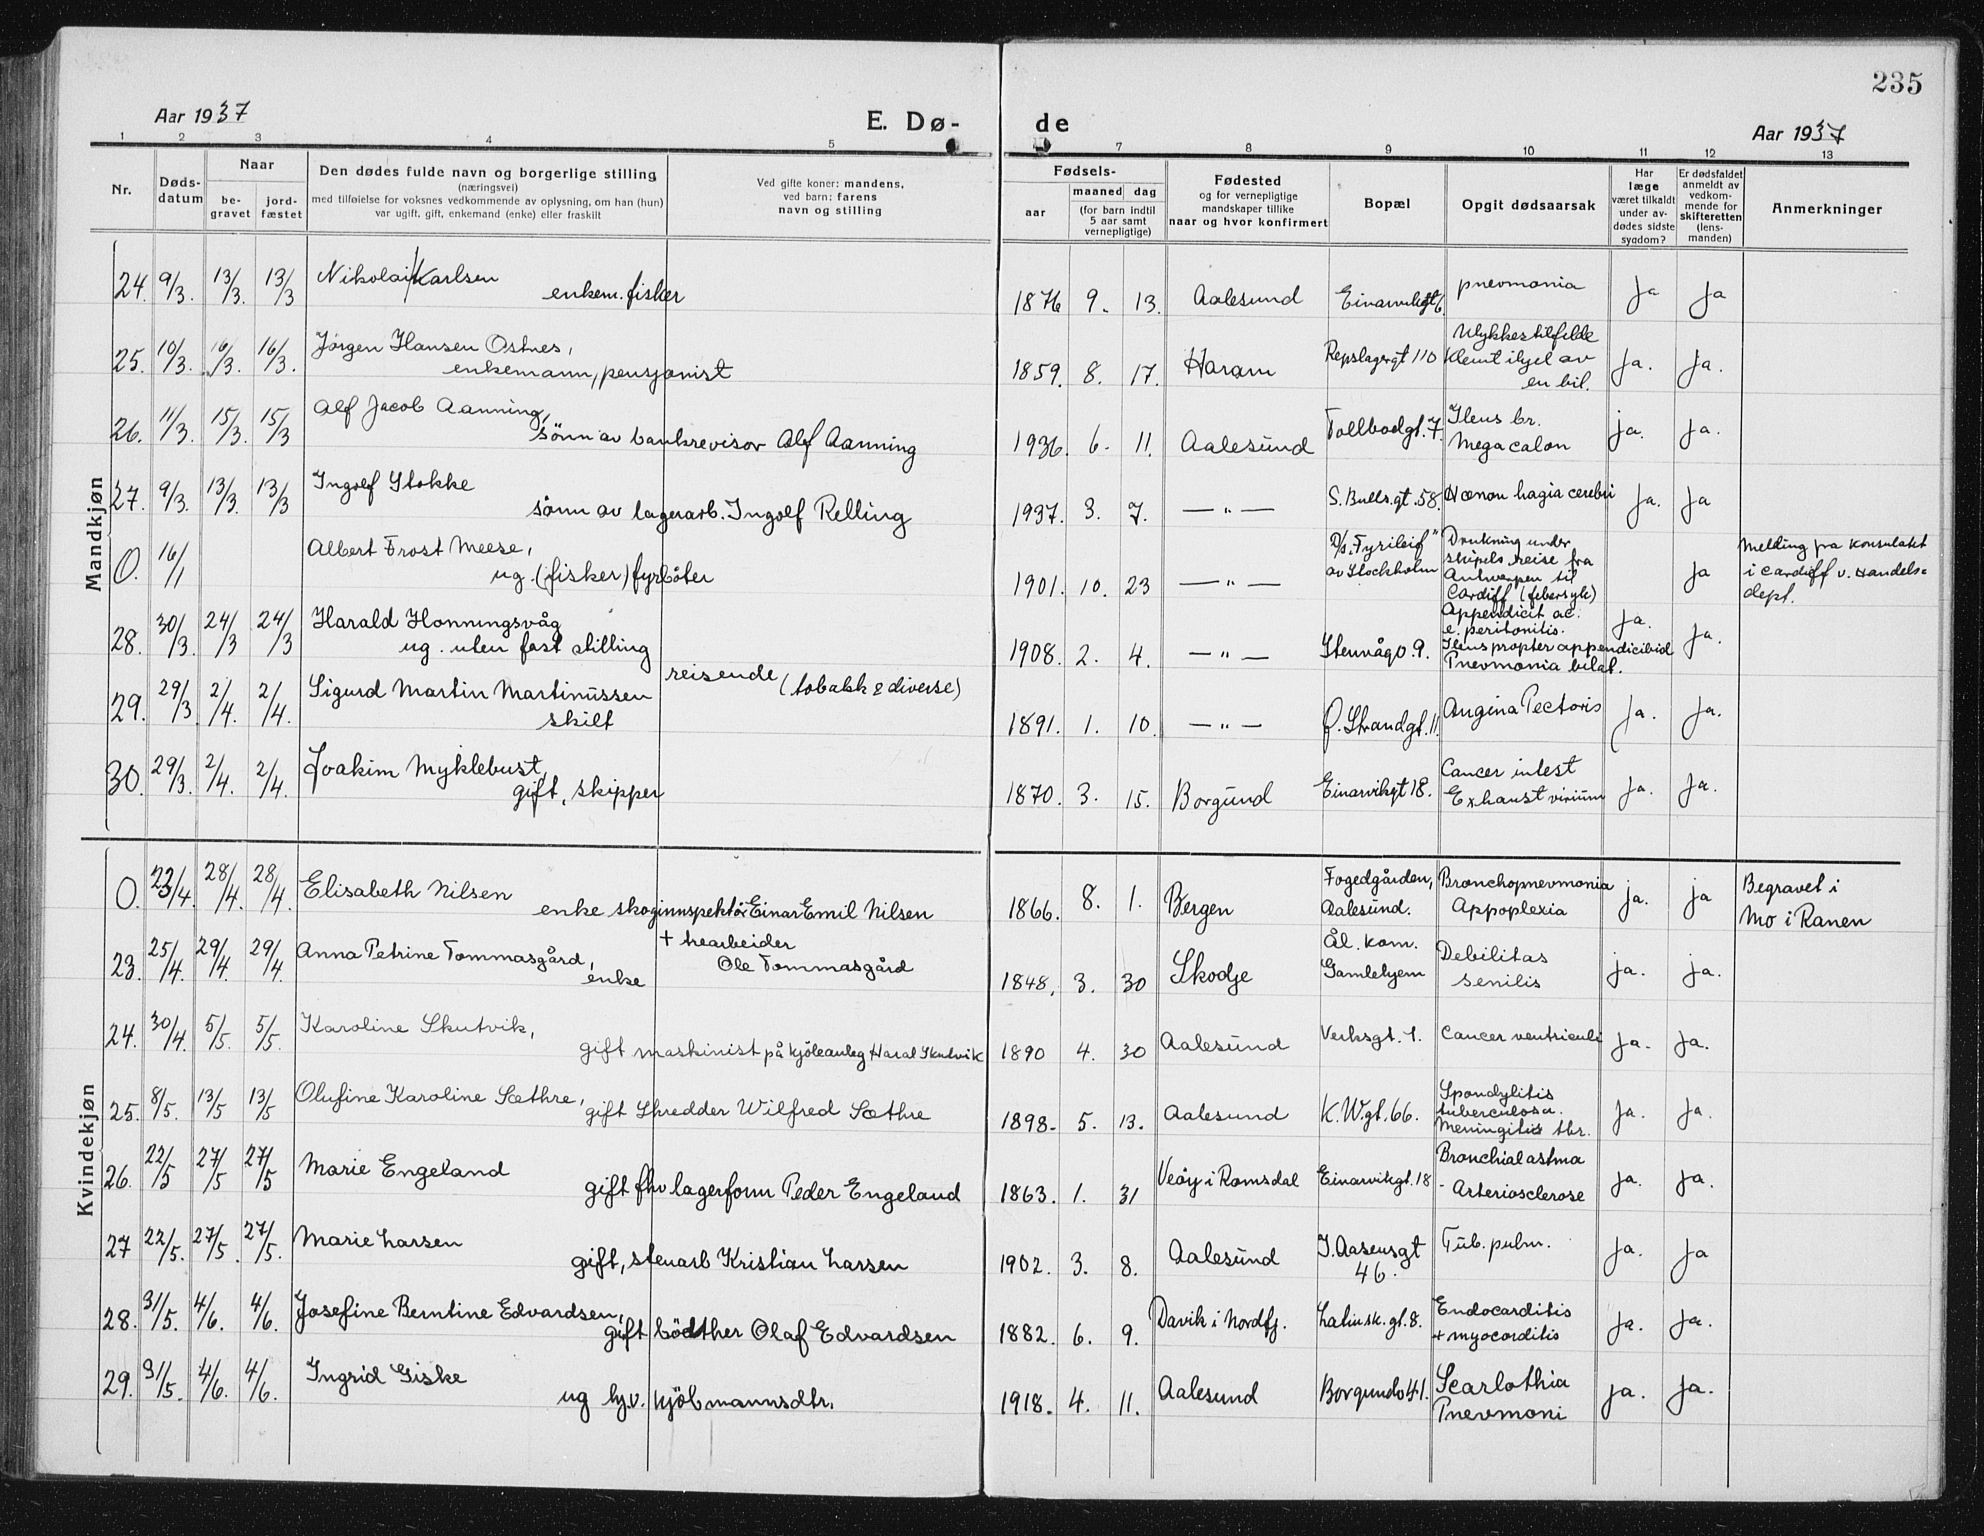 235
Aar 1937 E. Dø- de Aar 1937
1 2 3 4 5 7 8 9 10 11 12 13
Nr.
Dødsdatum
Naar
begravet
jordfæstet
Den dødes fulde navn og borgerlige stilling
(næringsvei)
med tilføielse for voksnes vedkommende av oplysning, om han (hun)
var ugift, gift, enkemand (enke) eller fraskilt
Ved gifte koner: mandens,
ved barn: farens
navn og stilling
Fødsels-
aar
maaned dag
(for barn indtil
5 aar samt
vernepligtige)
Fødested
og for vernepligtige
mandskaper tillike
naar og hvor konfirmert
Bopæl
Opgit dødsaarsak
Har
læge
været tilkaldt
under avdødes sidste
sygdom?
Er dødsfaldet
anmeldt av
vedkommende for
skifteretten
(lensmanden)
Anmerkninger
Mandkjøn
24. 9/3. 13/3. 13/3 Nikolai Karlsen
enkem. fisker
1876 9. 13. Aalesund Einarvikgt 6. pnevmonia ja ja
25. 10/3. 16/3. 16/3. Jørgen Hansen Ostnes,
enkemann, pensjonist
1859. 8. 17. Haram Repslagergt 110 Ulykkestilfelde
klemt ihjel av
en bil. ja. ja.
26. 11/3. 15/3. 15/3 Alf Jacob Aanning,
sønn av bankrevisor Alf Aanning
1936. 6. 11. Aalesund Tollbodgt. 7. Ileus br.
Megacalon ja. ja.
27. 9/3. 13/3. 13/3 Ingolf Stokke
sønn av lagerarb. Ingolf Relling
1937. 3. 7. — " — S. Bulls.gt. 58. Hæmorrhagia cerebri ja. ja
0. 16/1 Albert Frost Meese,
ug. (fisker) fyrbøter
1901. 10. 23 — " — D/s. "Fyrileif"
av Stockholm Drukning under
skipets reise fra
Antwerpen til
Cardiff (febersyk) ja Melding fra konsulatet
i Cardiff v. Handels=
dept.
28. 30/3. 24/3 24/3 Harald Honningsvåg
ug. uten fast stilling
1908. 2. 4. — " — Stenvågv. 9. Appendicit ac.
e. peritonitis.
Ileus propter appendicibid
Pnevmonia bilat. ja. ja.
29. 29/3 2/4. 2/4. Sigurd Martin Martinussen
skilt
reisende (tobakk & diverse)
1891. 1. 10. — " — Ø. Strandgt. 11. Angina Pectoris ja. ja.
30. 29/3. 2/4. 2/4. Joakim Myklebust,
gift, skipper
1870. 3. 15. Borgund Einarvikgt 18. Cancer intest
Exhaust virium ja. ja.
Kvindekjøn
0. 23/4. 28/4. 28/4. Elisabeth Nilsen
enke skoginnspektør Einar Emil Nilsen
1866. 8. 1. Bergen Fogedgården,
Aalesund. Bronchopnevmonia
Appoplexia ja. ja Begravet i
Mo i Ranen
23. 25/4. 29/4. 29/4. Anna Petrine Tommasgård,
enke
+ trearbeider
Ole Tommasgård
1848. 3. 30 Skodje Ål. kom.
Gamlehjem Debilitas
senilis ja. ja.
24. 30/4. 5/5. 5/5. Karoline Skutvik,
gift maskinist på kjøleanleg Haral Skutvik
1890 4. 30 Aalesund Verksgt. 1. Cancer ventriculi ja. ja.
25. 8/5. 13/5 13/5 Olufine Karoline Sæthre,
gift skredder Wilfred Sæthre
1898. 5. 13. Aalesund K. W.gt. 66. Spondylitis
tuberculosa.
Meningitis tbr. ja. ja.
26. 22/5 27/5 27/5 Marie Engeland
gift fhv lagerform Peder Engeland
1863. 1. 31 Veøy i Romsdal Einarvikgt. 18 Bronchialastma
- Arteriosclerose ja. ja.
27 22/5. 27/5. 27/5. Marie Larsen
gift, stenarb Kristian Larsen
1902. 3. 8. Aalesund I. Aasensgt
46. Tub. pulm. ja. ja
28. 31/5. 4/6. 4/6. Josefine Berntine Edvardsen,
gift bödtker Olaf Edvardsen
1882. 6. 9. Davik i Nordfj. Latinsk. gt. 8. Endocarditis
+ myocarditis ja. ja.
29. 31/5. 4/6. 4/6. Ingrid Giske
ug hj.v. kjöbmannsdtr.
1918. 4. 11. Aalesund Borgundv 41. Scarlothia
Pnevmoni ja. ja.